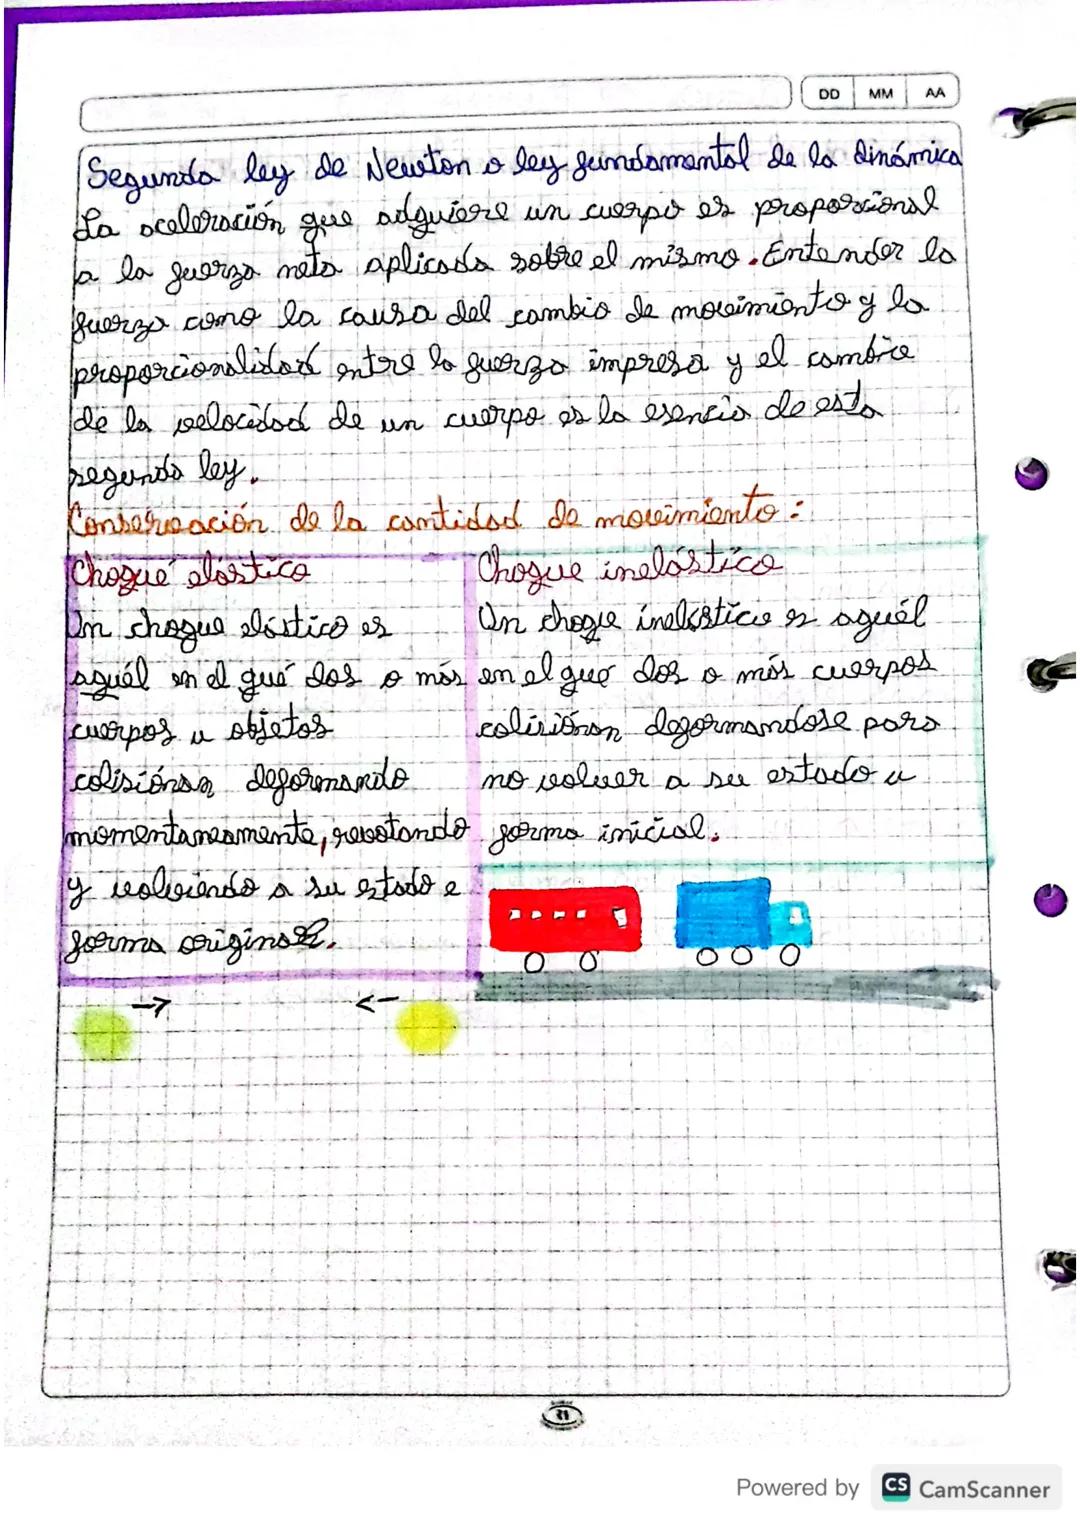 DD MM AA
Segunda ley de Newton o ley fundamental de la dinámica
La aceleración que adquiere un cuerpo es proporcional
a la fuerza neta aplicada sobre el mismo. Entender la
fuerza como la causa del cambio de movimiento y la
proporcionalidad entre la fuerza impresa y el cambio
de la velocidad de un cuerpo es la esencia de esta
segunda ley.
Conservación de la cantidad de movimiento:
Choque elástico
Un choque elástico es
aquél en el qué dos o más
cuerpos u objetos
colisiónan deformando
momentaneamente, revotando
y volviendo a su estado e
forma original.
Choque inelástico
Un choque inelástico es aquél
en el que dos o más cuerpos
colisiónan deformandose para
no volver a su estado u
forma inicial.
Powered by CS CamScanner